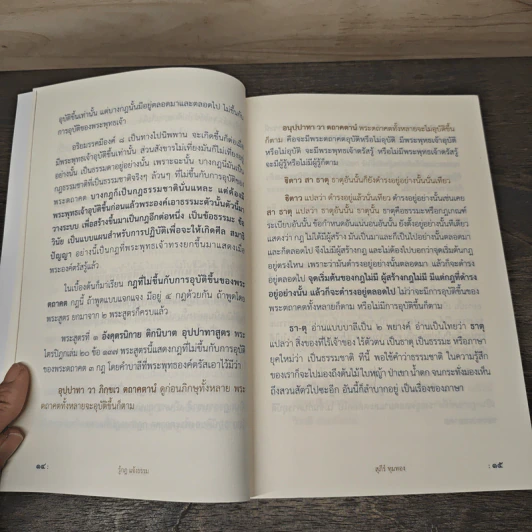 อุบัติขึ้นเท่านั้น แต่บางกฎนั้นมีอยู่ตลอดมาและตลอดไป ไม่ขึ้นกับ
การอุบัติของพระพุทธเจ้า
อริยมรรคมีองค์ ๘ เป็นทางไปนิพพาน จะเกิดขึ้นก็ต่อเมื่อ
มีพระพุทธเจ้าอุบัติขึ้นเท่านั้น ส่วนสังขารไม่เที่ยงมันก็ไม่เที่ยงอยู่
อย่างนั้น เป็นธรรมดาอยู่อย่างนั้น เพราะฉะนั้น บางกฎนี้มันเป็น
กฎธรรมชาติที่เป็นธรรมชาติจริงๆ ล้วนๆ ที่ไม่ขึ้นกับการอุบัติของ
พระตถาคต บางกฎก็เป็นกฎธรรมชาตินั่นแหละ แต่ต้องมี
พระพุทธเจ้าอุบัติขึ้นก่อนแล้วพระองค์เอาธรรมะตัวนั้นตัวนี้มา
วางระบบ เพื่อสร้างขึ้นมาเป็นกฎอีกต่อหนึ่ง เป็นข้อธรรมะ ข้อ
วินัย เป็นแบบแผนสำหรับการปฏิบัติเพื่อจะให้เกิดศีล สมาธิ
ปัญญา อย่างนี้เป็นกฎที่พระพุทธเจ้าทรงยกขึ้นมาแสดงเมื่อ
พระองค์ตรัสรู้แล้ว
ในเบื้องต้นก็มาเรียน กฎที่ไม่ขึ้นกับการอุบัติขึ้นของพระ
ตถาคต กฎนี้ ถ้าพูดแบบแจกแจง มีอยู่ ๔ กฎด้วยกัน ถ้าพูดโดย
พระสูตร ยกมาจาก ๒ พระสูตรก็ครบแล้ว
พระสูตรที่ ๑ อังคุตรนิกาย ติกนิบาต อุปปาทาสูตร พระ
ไตรปิฎกเล่ม ๒๐ ข้อ ๑๓๗ พระสูตรนี้แสดงกฎที่ไม่ขึ้นกับการอุบัติ
ของพระตถาคต ๓ กฎ โดยคำบาลีที่พระพุทธองค์ตรัสเอาไว้มีว่า
อุปฺปาทา วา ภิกฺขเว ตถาคตานํ ดูก่อนภิกษุทั้งหลาย พระ
ตถาคตทั้งหลายจะอุบัติขึ้นก็ตาม
๑๔ :
รู้กฎ แจ้งธรรม
อนุปฺปาทา วา ตถาคตานํ พระตถาคตทั้งหลายจะไม่อุบัติขึ้น
ก็ตาม คือจะมีพระตถาคตอุบัติหรือไม่อุบัติ จะมีพระพุทธเจ้าอุบัติ
หรือไม่อุบัติ จะมีพระพุทธเจ้าตรัสรู้ หรือไม่มีพระพุทธเจ้าตรัสรู้
จะมีผู้รู้หรือไม่มีผู้รู้ก็ตาม
ฐิตาว สา ธาตุ ธาตุอันนั้นก็ยังดำรงอยู่อย่างนั้นนั่นเทียว
ฐิตาว แปลว่า ดำรงอยู่แล้วนั่นเทียว ดำรงอยู่อย่างนั้นเช่นเคย
สา ธาตุ แปลว่า ธาตุอันนั้น ธาตุนั้น ธาตุคือธรรมะหรือกฎเกณฑ์
ระเบียบอันนั้น ข้อกำหนดอันแน่นอนอันนั้น ยังตั้งอยู่อย่างนั้นนั่นเทียว
แสดงว่า กฎ ไม่ได้มีผู้สร้าง มันเป็นมาและก็เป็นไปอย่างนั้นตลอดมา
และก็ตลอดไป จึงไม่มีผู้สร้างกฎ และไม่ต้องไปบอกว่าจุดเริ่มต้นกฎ
อยู่ตรงไหน เพราะว่ามันดำรงอยู่อย่างนั้นตลอดมา แล้วก็จะดำรง
อยู่อย่างนั้นตลอดไป จุดเริ่มต้นของกฎไม่มี ผู้สร้างกฎไม่มี มีแต่กฎที่ดำรง
อยู่อย่างนั้น แล้วก็จะดำรงอยู่ตลอดไป ไม่ว่าจะมีการอุบัติขึ้นของ
พระตถาคตทั้งหลายก็ตาม หรือไม่มีการอุบัติขึ้นก็ตาม
ธา-ตุ อ่านแบบบาลีเป็น ๒ พยางค์ ถ้าอ่านเป็นไทยว่า ธาตุ
แปลว่า สิ่งของที่ไร้เจ้าของ ไร้ตัวตน เป็นธาตุ เป็นธรรมะ หรือภาษา
ยุคใหม่ว่า เป็นธรรมชาติ ทีนี้ พอใช้คำว่าธรรมชาติ ในความรู้สึก
ของเราก็จะไปมองถึงต้นไม้ ใบหญ้า ป่าเขา น้ำตก จนกระทั่งมองเห็น
ถึงสวนสัตว์ไปซะอีก อันนี้ก็ลำบากอยู่ เป็นเรื่องของภาษา
สุภีร์ ทุมทอง
: ๑๕